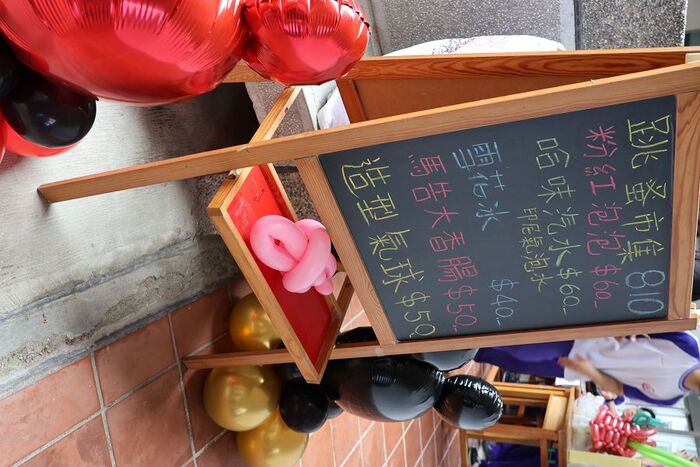 跳蚤市集 810
粉紅泡泡 $60.
哈味汽水 $60.
氣泡水
雪花冰 $40.
馬告大香腸 $50.
造型氣球 $50.